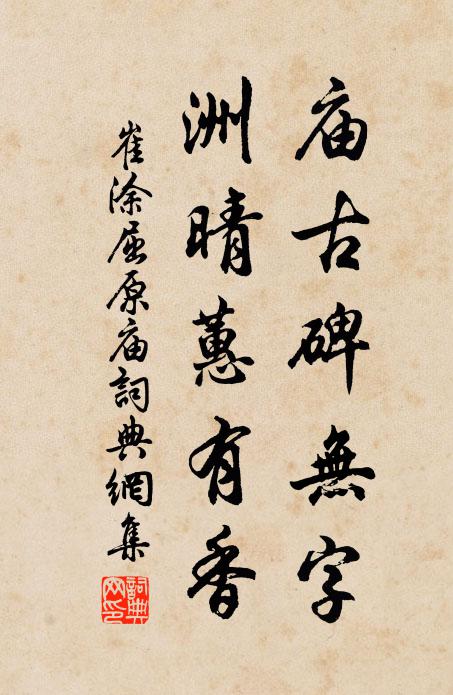 庙古碑無字
洲晴蕙有香
崔涂屈原庙詞典網集
詞典
网印